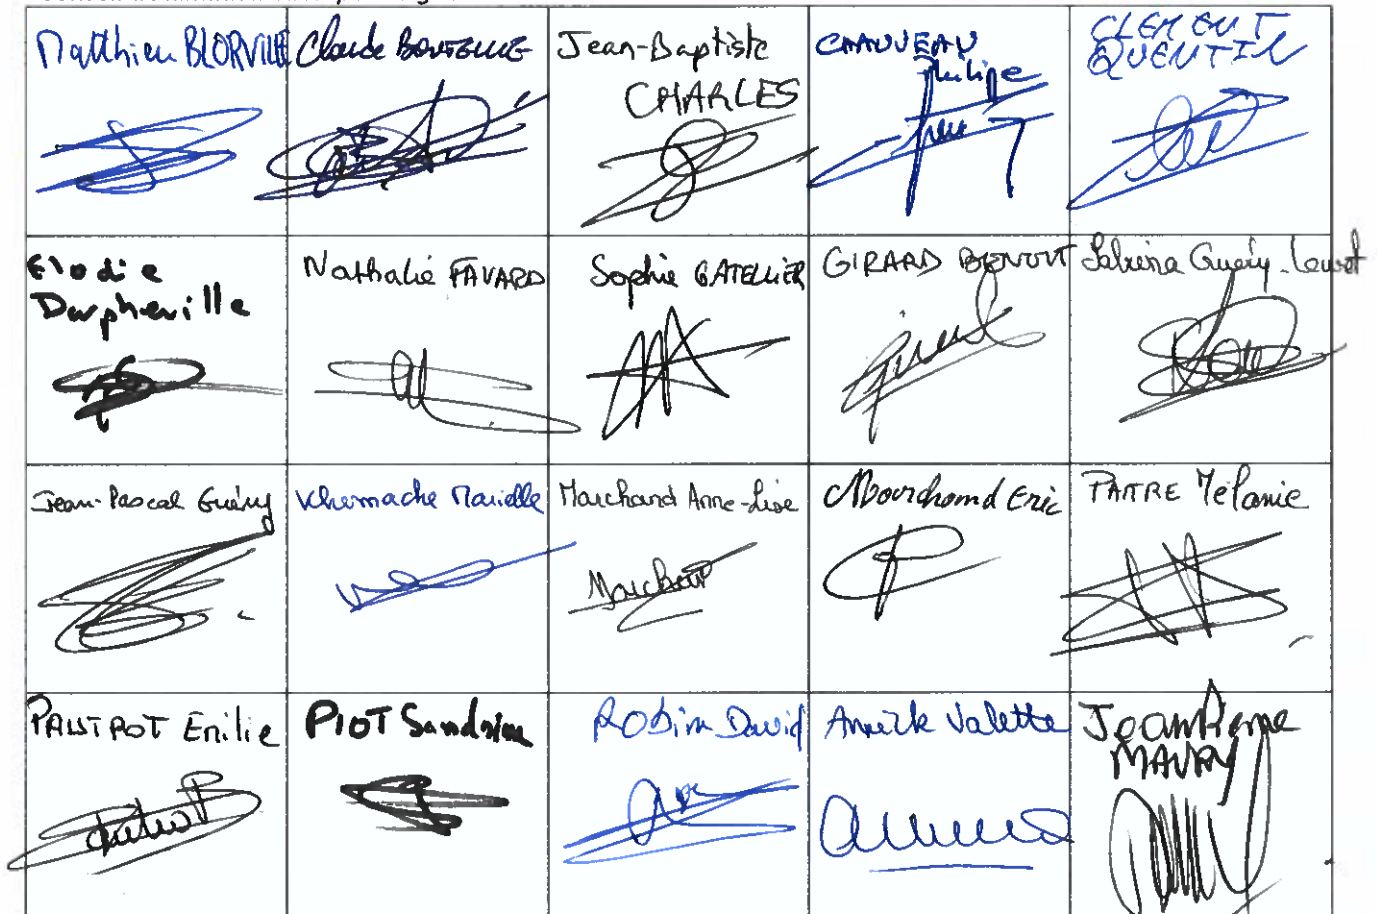 Matthieu BLORVILLE
Claude BONTEME
Jean-Baptiste
CHARLES
CHAUVEAU
Philippe
CLEMENT
QUENTIN
Elodie
Dorpheuille
Nathalie FAVARD
Sophie GATELLIER
GIRARD BENOIT
Sabrina Guéry-Louvet
Jean-Pascal Guéry
Khemache Marielle
Marchand Anne-Lise
Marchand
Marchand Eric
PAITRE Mélanie
PAUTROT Emilie
PIOT Sandrine
Robin David
Annick Valette
Jean Pierre
MAURY